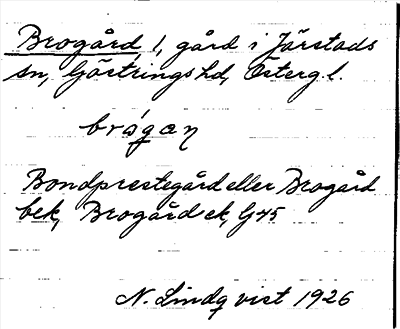 Brogård 1, gård i Järstads
sn, Göstrings hd, Österg. l.
brógaɳ
Bondprestegård eller Brogård
bek, Brogård ek, G 45
N. Lindqvist 1926